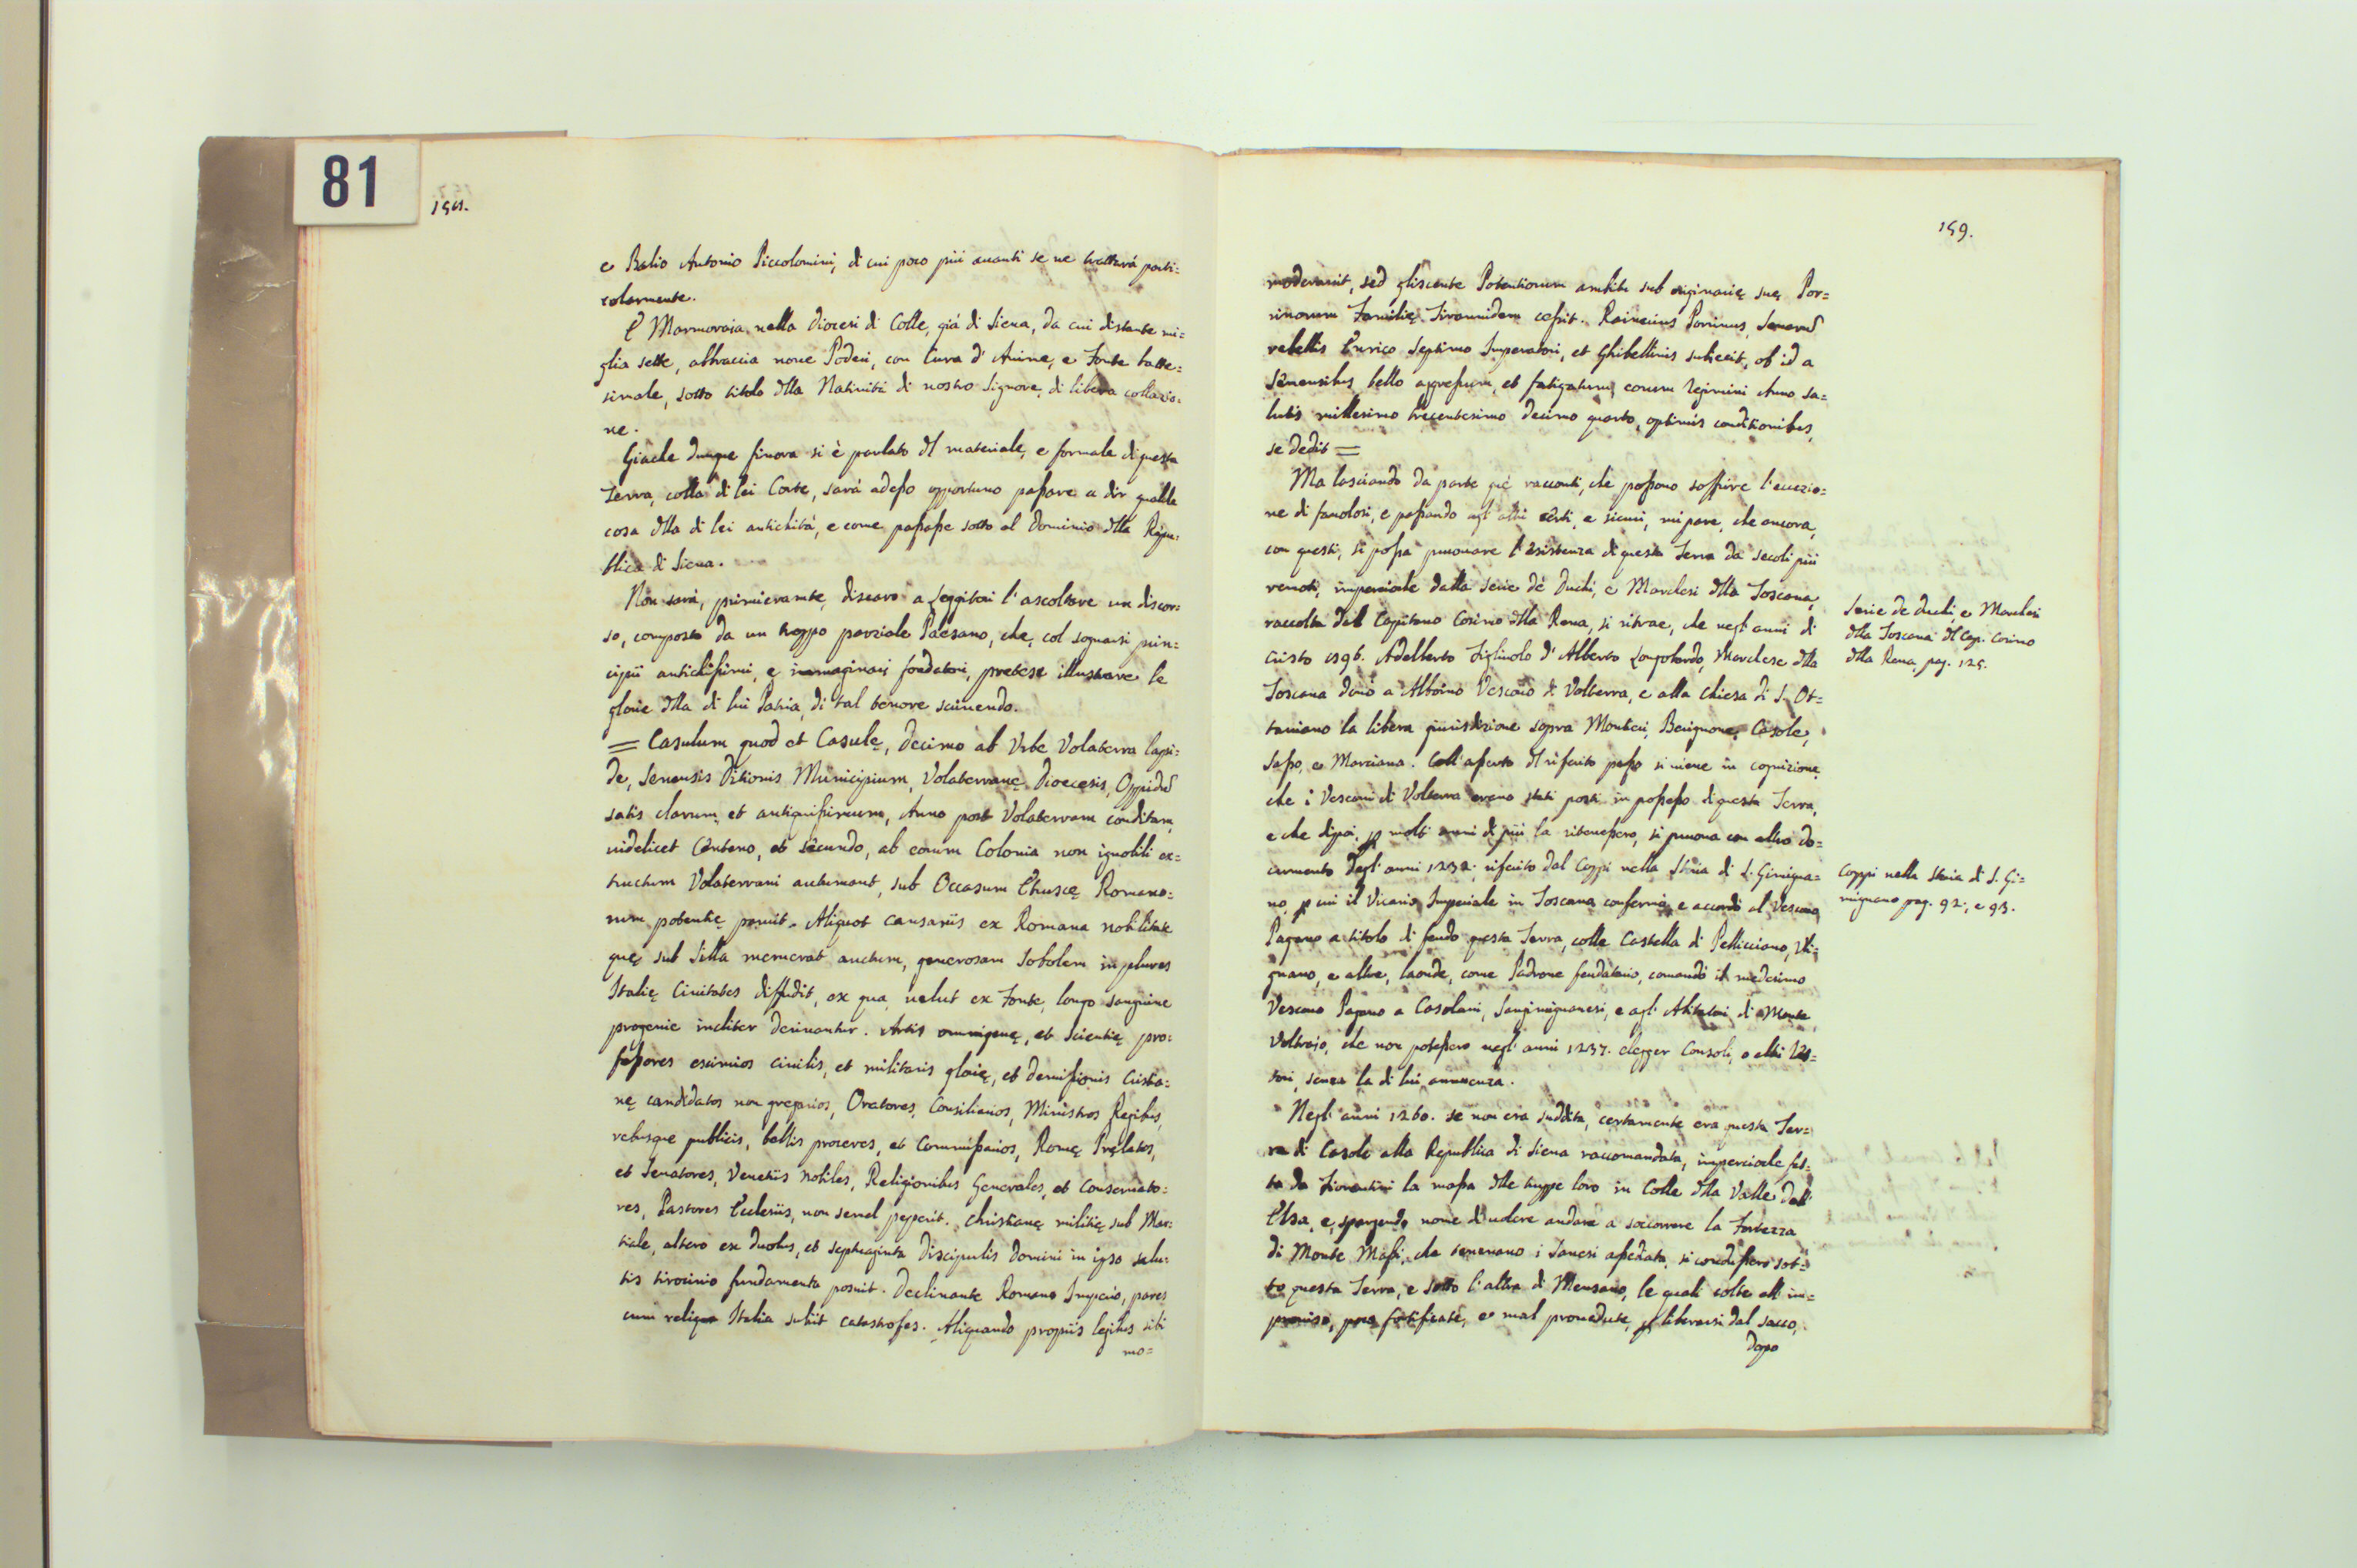 81
158.
e Balio Antonio Piccolomini, di cui poco più avanti se ne trattarà parti=
colarmente.
E Marmoraia nella Diocesi di Colle, già di Siena, da cui distante mi=
glia sette, abbraccia nove Poderi, con Cura d'Anime, e Fonte batte=
simale, sotto titolo dlla Natività di nostro Signore, di libera collazio=
ne.
Giache dunque finora si è parlato dl materiale, e formale di questa
Terra, colla di lei Corte, sarà adesso opportuno passare a dir qualche
cosa dlla di lei antichità, e come passasse sotto al Dominio dlla Repu=
blica di Siena.
Non sarà, primieramte, discaro a Leggitori l'ascoltare un discor=
so, composto da un troppo parziale Paesano, che, col sognarsi prin=
cipii antichissimi, e immaginarj fondatori, pretese illustrare le
glorie dlla di lui Patria, di tal tenore scrivendo.
= Casulum quod et Casulę, decimo ab Urbe Volaterra lapi=
de, Senensis Ditionis Municipium, Volaterranę Dioecesis, Oppidū
satis clarum, et antiquissimum, Anno post Volaterram conditam,
videlicet Centeno, et secundo, ab eorum Colonia non ignobili ex=
tructum Volaterrani autumant, sub Occasum Etruscę Romano=
rum potentię paruit. Aliquot causariis ex Romana nobilitate
quę sub Silla memerat auctum, generosam Sobolem in plures
Italię Civitates diffudit, ex qua, velut ex Fonte, longo sanguine
progenie incliter derivantur. Artis omnigenę, et Scientię pro=
fessores eximios civilis, et militaris glorię, et demissionis Cristia=
nę candidatos non gregarios, Oratores, Consiliarios, Ministros Regibus,
rebusque publicis, bellis proceres, et Commissarios, Romę Prelatos,
et Senatores, Venetiis nobiles, Religionibus Generales, et Conservato=
res, Pastores Ecclesiis, non semel peperit. Christianę militię sub Mar=
tiale, altero ex duobus, et septuaginta Discipulis Domini in ipso salu=
tis tirocinio fundamenta posuit. Declinante Romano Imperio, pares
cum reliqua Italia subiit catastrofes. Aliquando propriis legibus sibi
mo=
159.
moderavit, sed gliscente Potentiorum ambitu sub originarię suę Por=
rinorum Familię Tirannidem cessit. Rainerius Porrinus, Senarū
rebellis Enrico Septimo Imperatori, et Ghibellinis subiecit, ob id a
Senensibus bello aggressum, et fatigatum, eorum Regimini Anno sa=
lutis millesimo trecentesimo decimo quarto, optimis conditionibus,
se dedit =
Ma lasciando da parte que racconti, che possono soffrire l'eccezio=
ne di favolosi, e passando agl'altri certi, e sicuri, mi pare, che ancora,
con questi, si possa provare l'Esistenza di questa Terra da secoli più
remoti, imperciòche dalla Serie de Duchi, e Marchesi dlla Toscana,
raccolta dal Capitano Cosimo dlla Rena, si ritrae, che negl'anni di
Cristo 1196. Adelberto Figliuolo d'Alberto Longobardo, Marchese dlla
Toscana donò a Alboino Vescovo di Volterra, e alla Chiesa di S. Ot=
taviano la libera giurisdizione sopra Montieri, Berignone, Casole,
Sasso, e Marciana. Coll'aperto dl riferito passo si viene in cognizione
che i Vescovi di Volterra erano stati posti in possesso di questa Terra,
e che dipoi, p molti anni di più la ritenessero, si prova con altro do=
cumento degl'anni 1232; riferito dal Coppi nella Storia di S. Gimigna=
no, p cui il Vicario Imperiale in Toscana confermò, e accordò al Vescovo
Pagano a titolo di feudo questa Terra, colle Castella di Pellicciano, Uli=
gnano, e altre, laonde, come Padrone feudatario, comandò il medesimo
Vescovo Pagano a Casolani, Sangimignanesi, e agl'Abitatori di Monte
Voltraio, che non potessero negl'anni 1237. elegger Consoli, o altri Ret=
tori, senza la di lui annuenza.
Negl'anni 1260. se non era suddita, certamente era questa Ter=
ra di Casole alla Republica di Siena raccomandata, imperciòche fat=
ta da Fiorentini la massa dlle truppe loro in Colle dlla Valle dell'
Elsa, e, spargendo nome di volere andare a soccorrere la Fortezza
di Monte Massi, che tenevano i Sanesi assediata, si condussero sot=
to questa Terra, e sotto l'altra di Mensano, le quali colte all'im=
proviso, poco fortificate, e mal provedute, p liberarsi dal sacco,
dopo
Serie de Duchi, e Marchesi
dlla Toscana dl Cap. Cosimo
dlla Rena, pag. 125.
Coppi nella Storia di S. Gi=
mignano pag. 92., e 93.